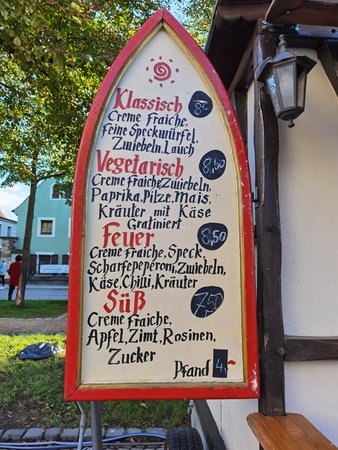 Klassisch 8,-
Creme Fraiche,
Feine Speckwürfel,
Zwiebeln, Lauch
Vegetarisch 8,50
Creme Fraiche, Zwiebeln,
Paprika, Pilze, Mais,
Kräuter mit Käse
Gratiniert
Feuer 8,50
Creme Fraiche, Speck,
Scharfepeperoni, Zwiebeln,
Käse, Chilli, Kräuter
Süß 7,50
Creme Fraiche,
Apfel, Zimt, Rosinen,
Zucker
Pfand 4,-